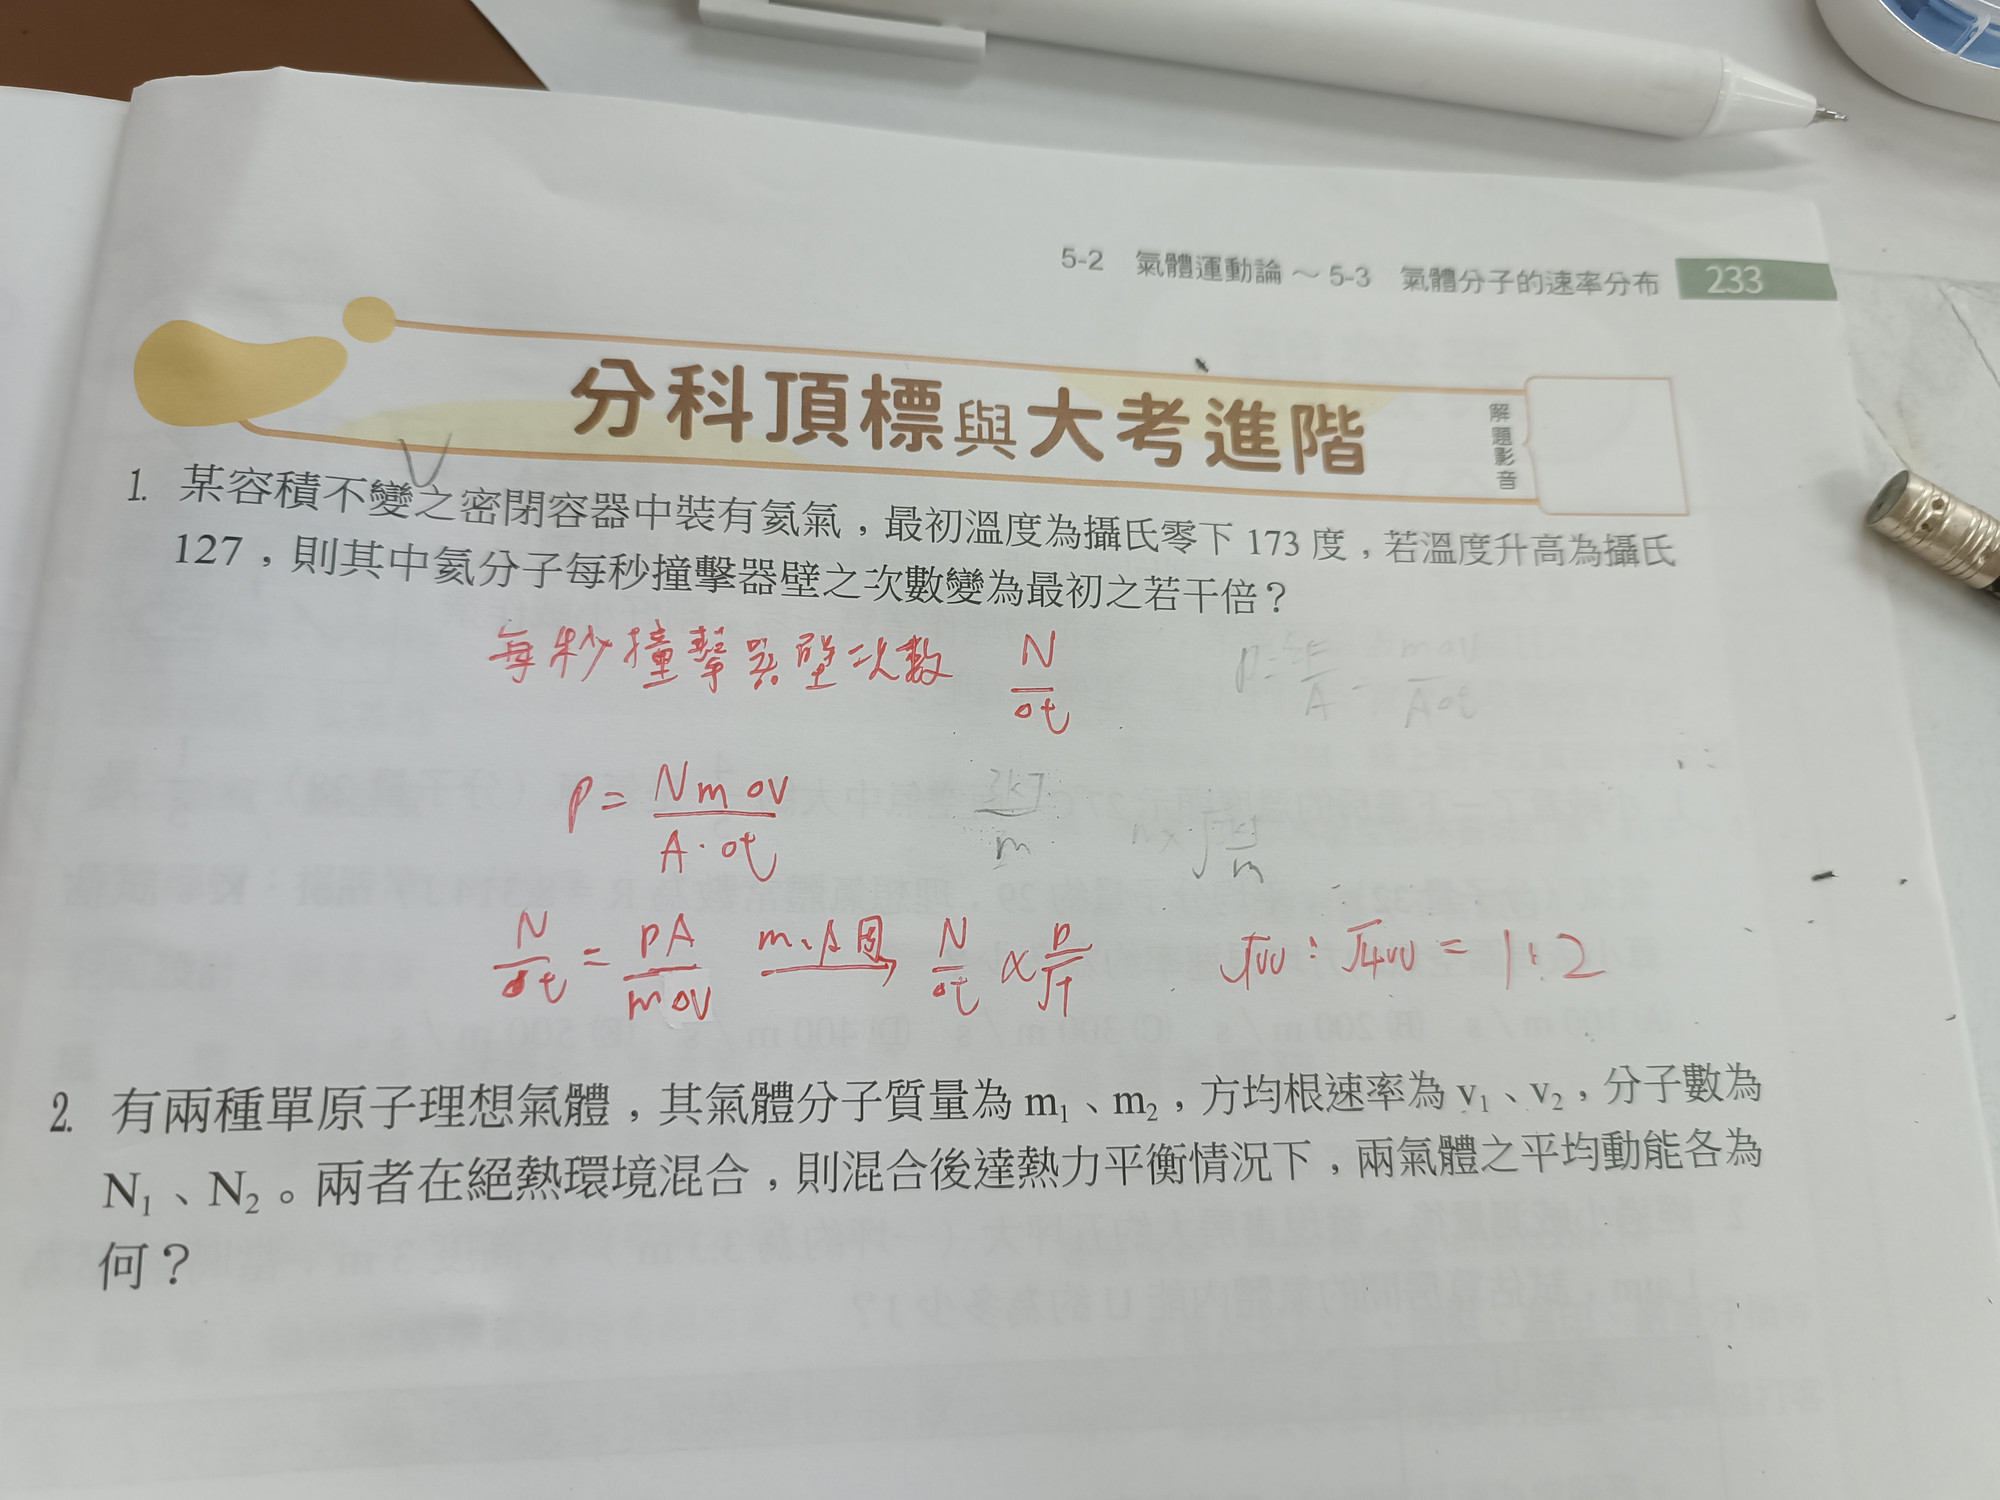 5-2 氣體運動論～5-3 氣體分子的速率分布 233
分科頂標與大考進階
解題影音
1. 某容積不變之密閉容器中裝有氦氣，最初溫度為攝氏零下 173 度，若溫度升高為攝氏
127，則其中氦分子每秒撞擊器壁之次數變為最初之若干倍？
每秒撞擊器壁次數 N/Δt
P = NmΔV/A·Δt
N/Δt = PA/mΔV m、A固→ N/Δt ∝ P/√T √100 : √400 = 1:2
2. 有兩種單原子理想氣體，其氣體分子質量為 m₁、m₂，方均根速率為 v₁、v₂，分子數為
N₁、N₂。兩者在絕熱環境混合，則混合後達熱力平衡情況下，兩氣體之平均動能各為
何？